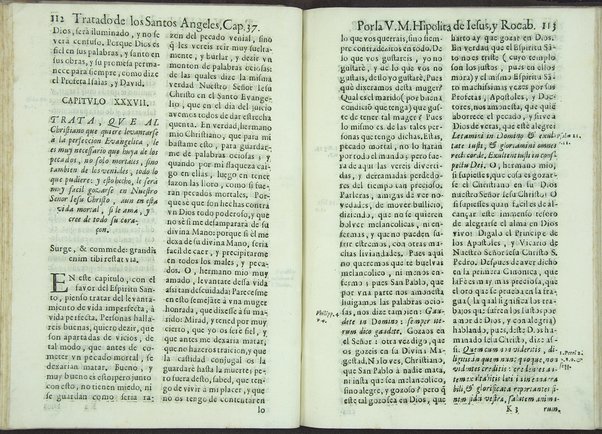 112 Tratado de los Santos Angeles, Cap. 37.
Dios, será iluminado, y no se
verá confuso. Porque Dios es
fiel en sus palabras, y santo en
sus obras, y su promesa perma-
nece para siempre, como dize
el Profeta Isaias, y David.
CAPITVLO XXXVII.
TRATA, QVE AL
Christiano que quiere levantarse
a la perfeccion Evangelica, le
es muy necessario que huya de los
pecados, no solo mortales, sino
tambien de los veniales, todo lo
que pudiere: y esto hecho, le sera
muy facil gozarse en Nuestro
Señor Iesu Christo, aun en esta
vida mortal, si le ama, y
cree de todo su cora-
çon.
Surge, & commede: grandis
enim tibi restat via.
EN este capitulo, con el
favor del Espiritu San-
to, pienso tratar del levanta-
miento de vida imperfecta, à
vida perfecta. Personas halla-
reis buenas, quiero dezir, que
son apartadas de vicios, de
tal modo, que antes de co-
meter vn pecado mortal, se
dexarian matar. Bueno, y
muy bueno es esto: pero junto
con esto, no tienen miedo, ni
se guardan como seria ra-
zon del pecado venial, sino
q̃ les vereis reir muy suelta-
mente, y burlar, y dezir vn
monton de palabras ociosas:
de las quales dize la misma
verdad Nuestro Señor Iesu
Christo en el Santo Evange-
lio, que en el dia del juicio
avemos todos de dar estrecha
quenta. En verdad, hermano
mio Christiano, que para mi
bastame esto, para guardar-
me de palabras ociosas; y
quando por mi flaqueza cai-
go en ellas, luego en tener
lazon las lloro, como si fue-
ran pecados mortales. Por-
que se que son hechas contra
vn Dios todo poderoso, y que
no me si me desamparara de su
divina Mano: porque si el me
dexa de su divina Mano, seria
facil de caer, y precipitarme
en todos los males, y peca-
dos. O, hermano mio muy
amado, levantate dessa vida
assi tan descuidada! Pareceisme
en esso semejāte à vna muger
honrada, que dixesse à su ma-
rido: Mirad, y tened por muy
cierto, que yo os seré fiel, y
que antes me dexaria matar,
que no hazeros traicion, y que
la castidad conjugal os la
guardaré perpetuamente: pe-
ro fuera desto, sabed, que ten-
go de vivir à mi placer, y que
no os tengo de contentar en
lo
Por la V. M. Hipolita de Iesus, y Rocab. 113
lo que vos querrais, sino siem-
pre contradeziros en todo. De
lo que vos gustareis, yo no
gustaré, y de lo que yo gusta-
ré, deveis de gustar vos. Pues
qué diximos desta muger?
Qual es el marido (por buena
condicion que tenga) que ha-
ga de tener tal muger? Pues
lo mismo es de las tales perso-
nas que tengo dichas. Estas,
pecado mortal, no lo haràn
por todo el mundo: pero fue-
ra de aqui las vereis diverti-
das, y derramadas, perdedores
del tiempo tan precioso.
Parleras, amigas de ver no-
vedades, de mover bullicio,
diziendo, que no se quieren
bolver melancolicas, nien-
fermas, y que no pueden su-
frir estremos, con otras mu-
chas liviandades. Pues aqui
yo no siento que se buelvan
melancolico, ni menos en-
fermos: y pues San Pablo, que
por vna parte nos amonesta
huigamos las palabras ocio-
sas, nos dize tambien: Gau-
dete in Domino semper: ite-
rum dico gaudete. Gozaos en
el Señor: i otra vez digo, que
os gozeis en la Divina Ma-
gestad. N lo veis, Christiano,
que San Pablo à nadie mata,
ni quiere que sea melancolico,
sino alegre, y gozoso? pero q̃
este tal gozo sea en Dios, que
harto ay que gozar en Dios.
En verdad que el Espiritu Sā-
to no es triste (cuyo templo
son los justos,) pues èl mis-
mo y el mismo Espiritu santo
machissimas vezes por sus
Profetas, y Doctores, y Apos-
toles, nos amonesta, que aqui
aborrece el pecado, y sirve à
Dios de veras, que esté alegre:
Letamini in Domino & exulta-
te iusti, & gloriamini omnes
recti corde. Exultent iusti in cōspe-
ctu Dei. O, hermano mio,
si supiesse, que cosa es gozar-
se el Christiano en su Dios
nuestro Señor Iesu Christo! O
si supiesses quantos bienes al-
cançan este immenso tesoro
de alegrarse el alma en Dios
vivo! Digalo el Principe de
los Apostoles, y Vicario de
Nuestro Señor Iesu Christo S.
Pedro. Despues de aver dicho
en la primera Canonica, que
la Fè es mas preciosa, que no
el oro que se prueba en la fra-
gua (la qual la sigue los tra-
bajos que los justos toman por
amor de Dios, y con alegria)
hablando, pues, deste Divino
Señor Iesu Christo, dize as-
si: Quem cum non videritis, di-
ligitis, in quem nunc quoque, non
videntes creditis: credentes au-
tem exultabitis letitia inenarrabi-
li, & glorificata: reportantes fi-
nem fidei vestra, salutem anima-
K 3 rum.
Philipp.
1. Petri 1.